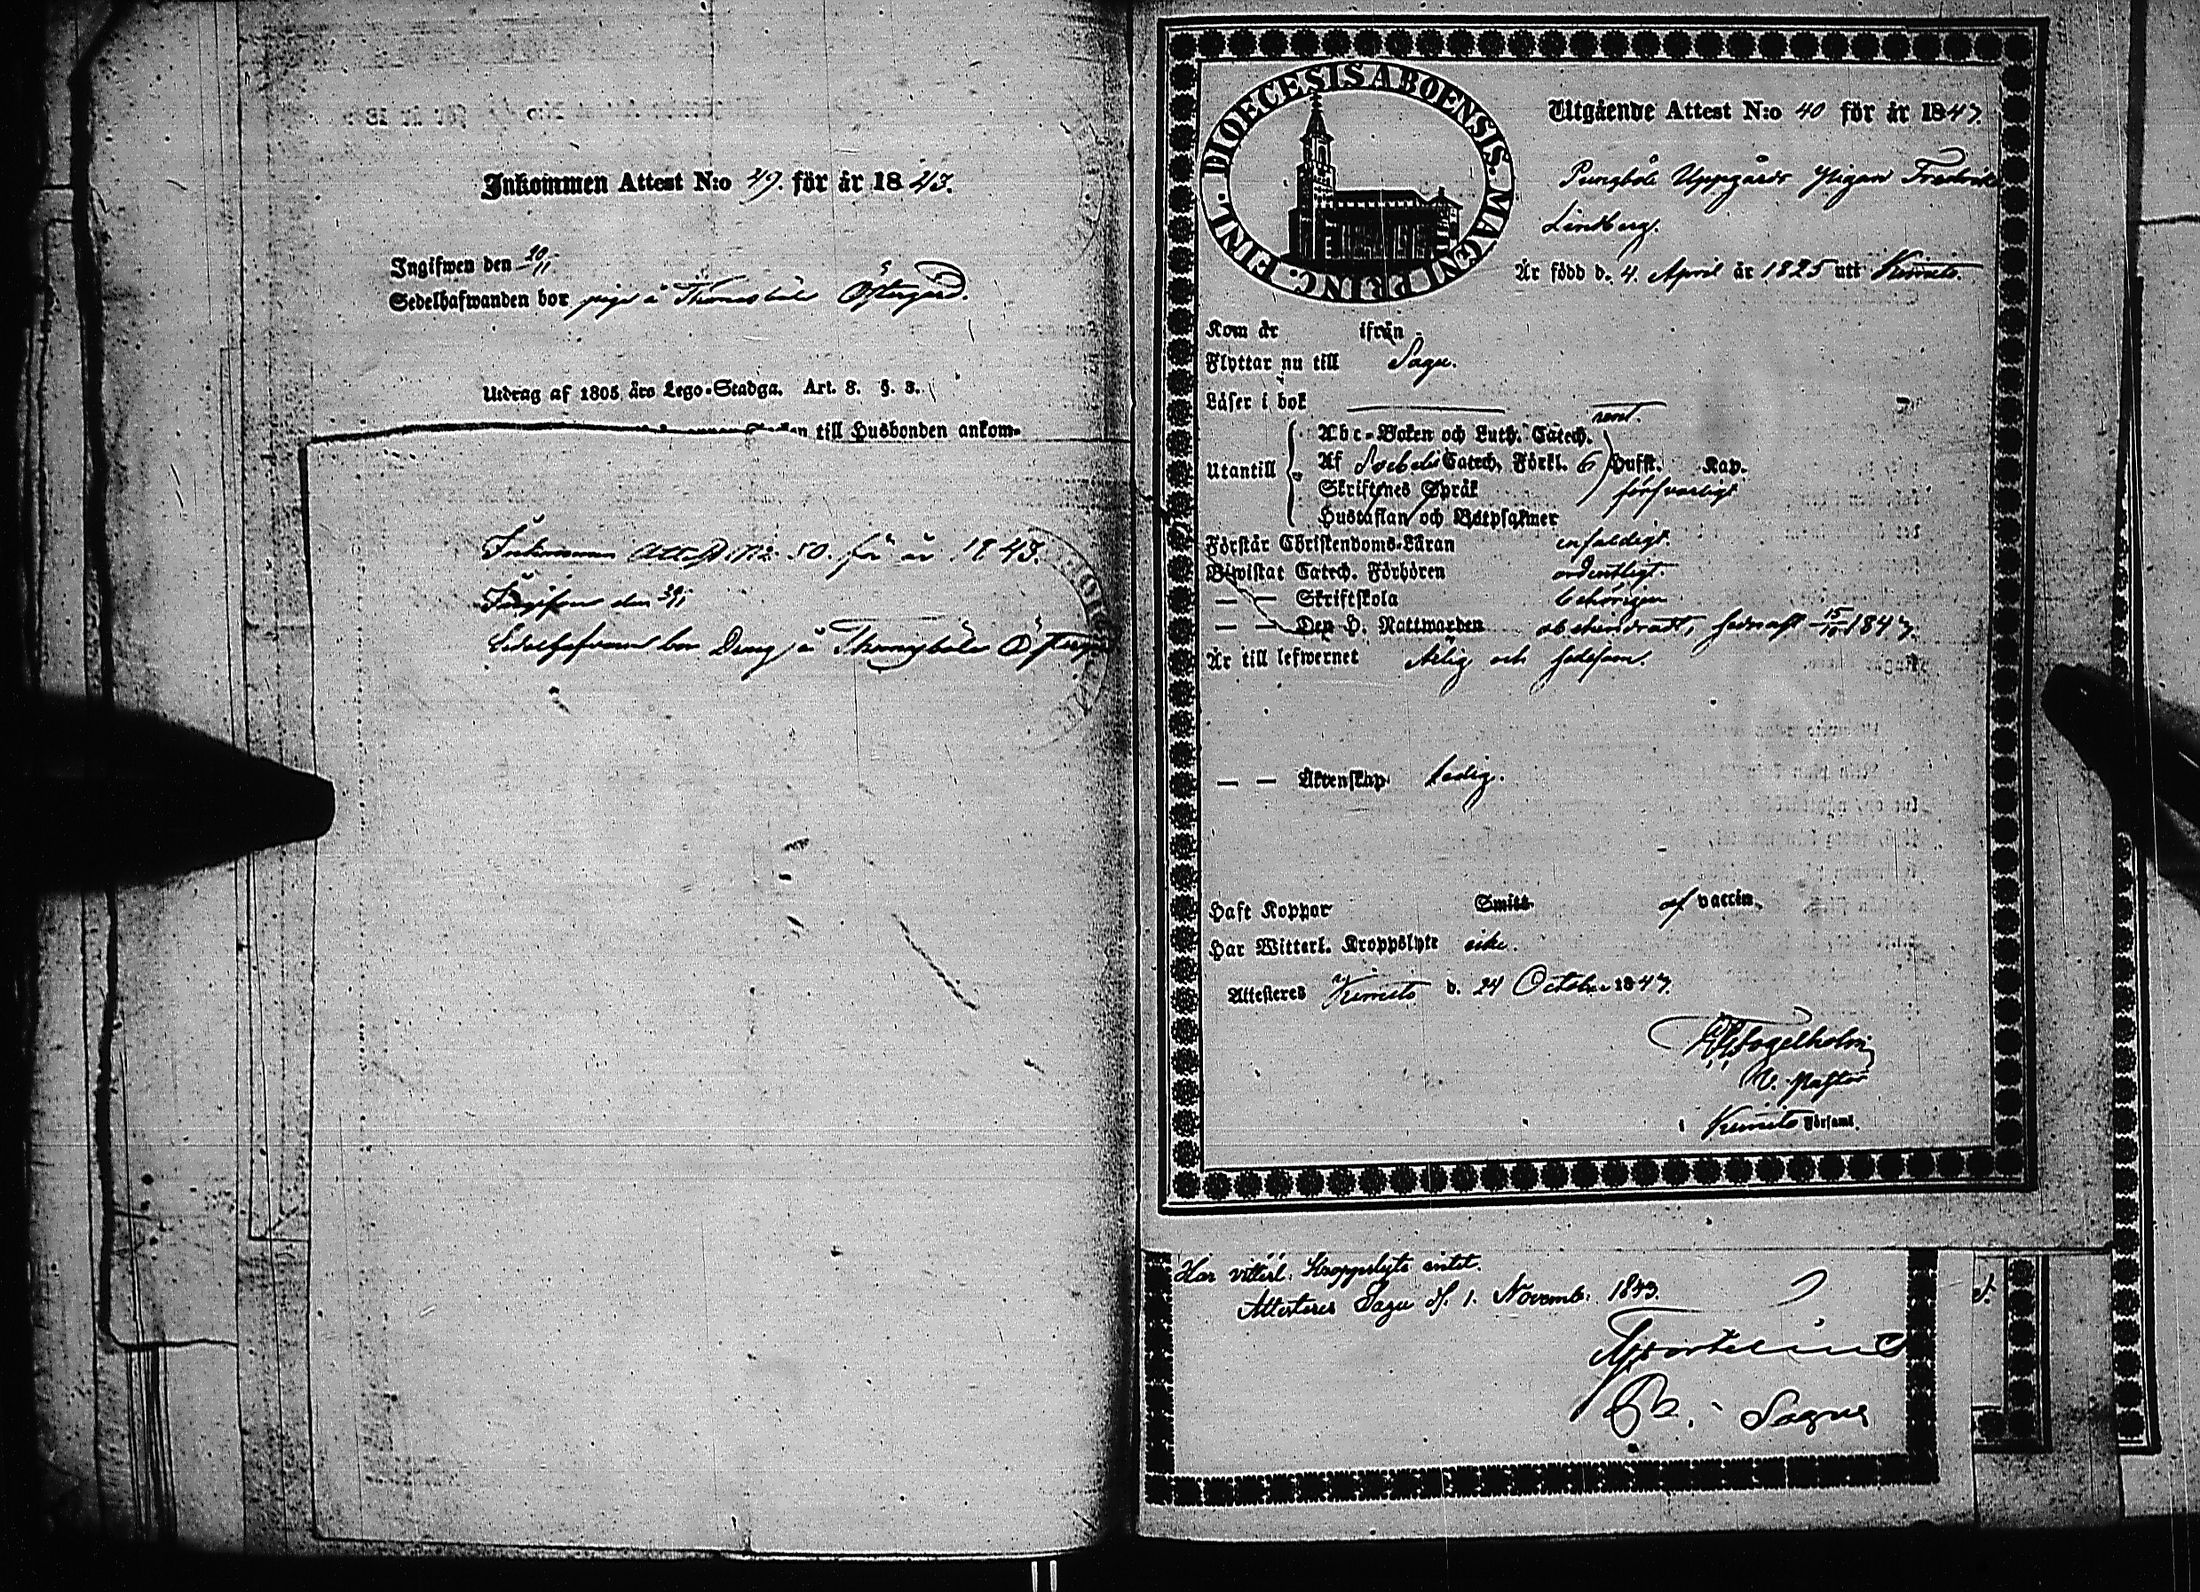 Inkommen Attest N:o 49. för år 1843.
Ingifwen den 20/11
Sedelhafwanden bor piga å Thomasböle Östergård.
Utdrag af 1805 års Lego-Stadga. Art. 8. §. 3.
till Husbonden ankom-
Inkommen Attest No 50. för år 1843.
Ingifven den
Sedelhafvand bor Dräng å Östergå
DIOECESIS ABOENSIS. MAGNI PRINC. FINL.
Utgående Attest N:o 40 för år 1847.
Pungböle Uppgårds Pigan Fredrika
Lindberg.
Är född d. 4. April år 1825 uti Kimito.
Kom år ifrån
Flyttar nu till Sagu.
Läser i bok rent.
Utantill
Abc-Boken och Luth. Catech.
Af Catech. Förkl. 6 Hufst. Kap.
Skriftenes Språk försvarligt
Hustaflan och Botpsalmer
Förstår Christendoms-Läran enfaldigt.
Biwistat Catech. Förhören ordentligt.
— — Skriftskola behörigen
— — Den H. Nattwarden obehindradt, sednast 15/10 1847.
Är till lefwernet Ärlig och sedesam.
— — Äktenskap ledig.
Haft Koppor Smitt. af vaccin.
Har Witterl. Kroppslyte icke.
Attesteres Kimito d. 24 October 1847.
Fogelholm
V. Pastor
i Kimito Församl.
Har vitterl. Kroppslyte intet.
Attesteres Sagu d. 1. Novemb. 1843.
Sagu